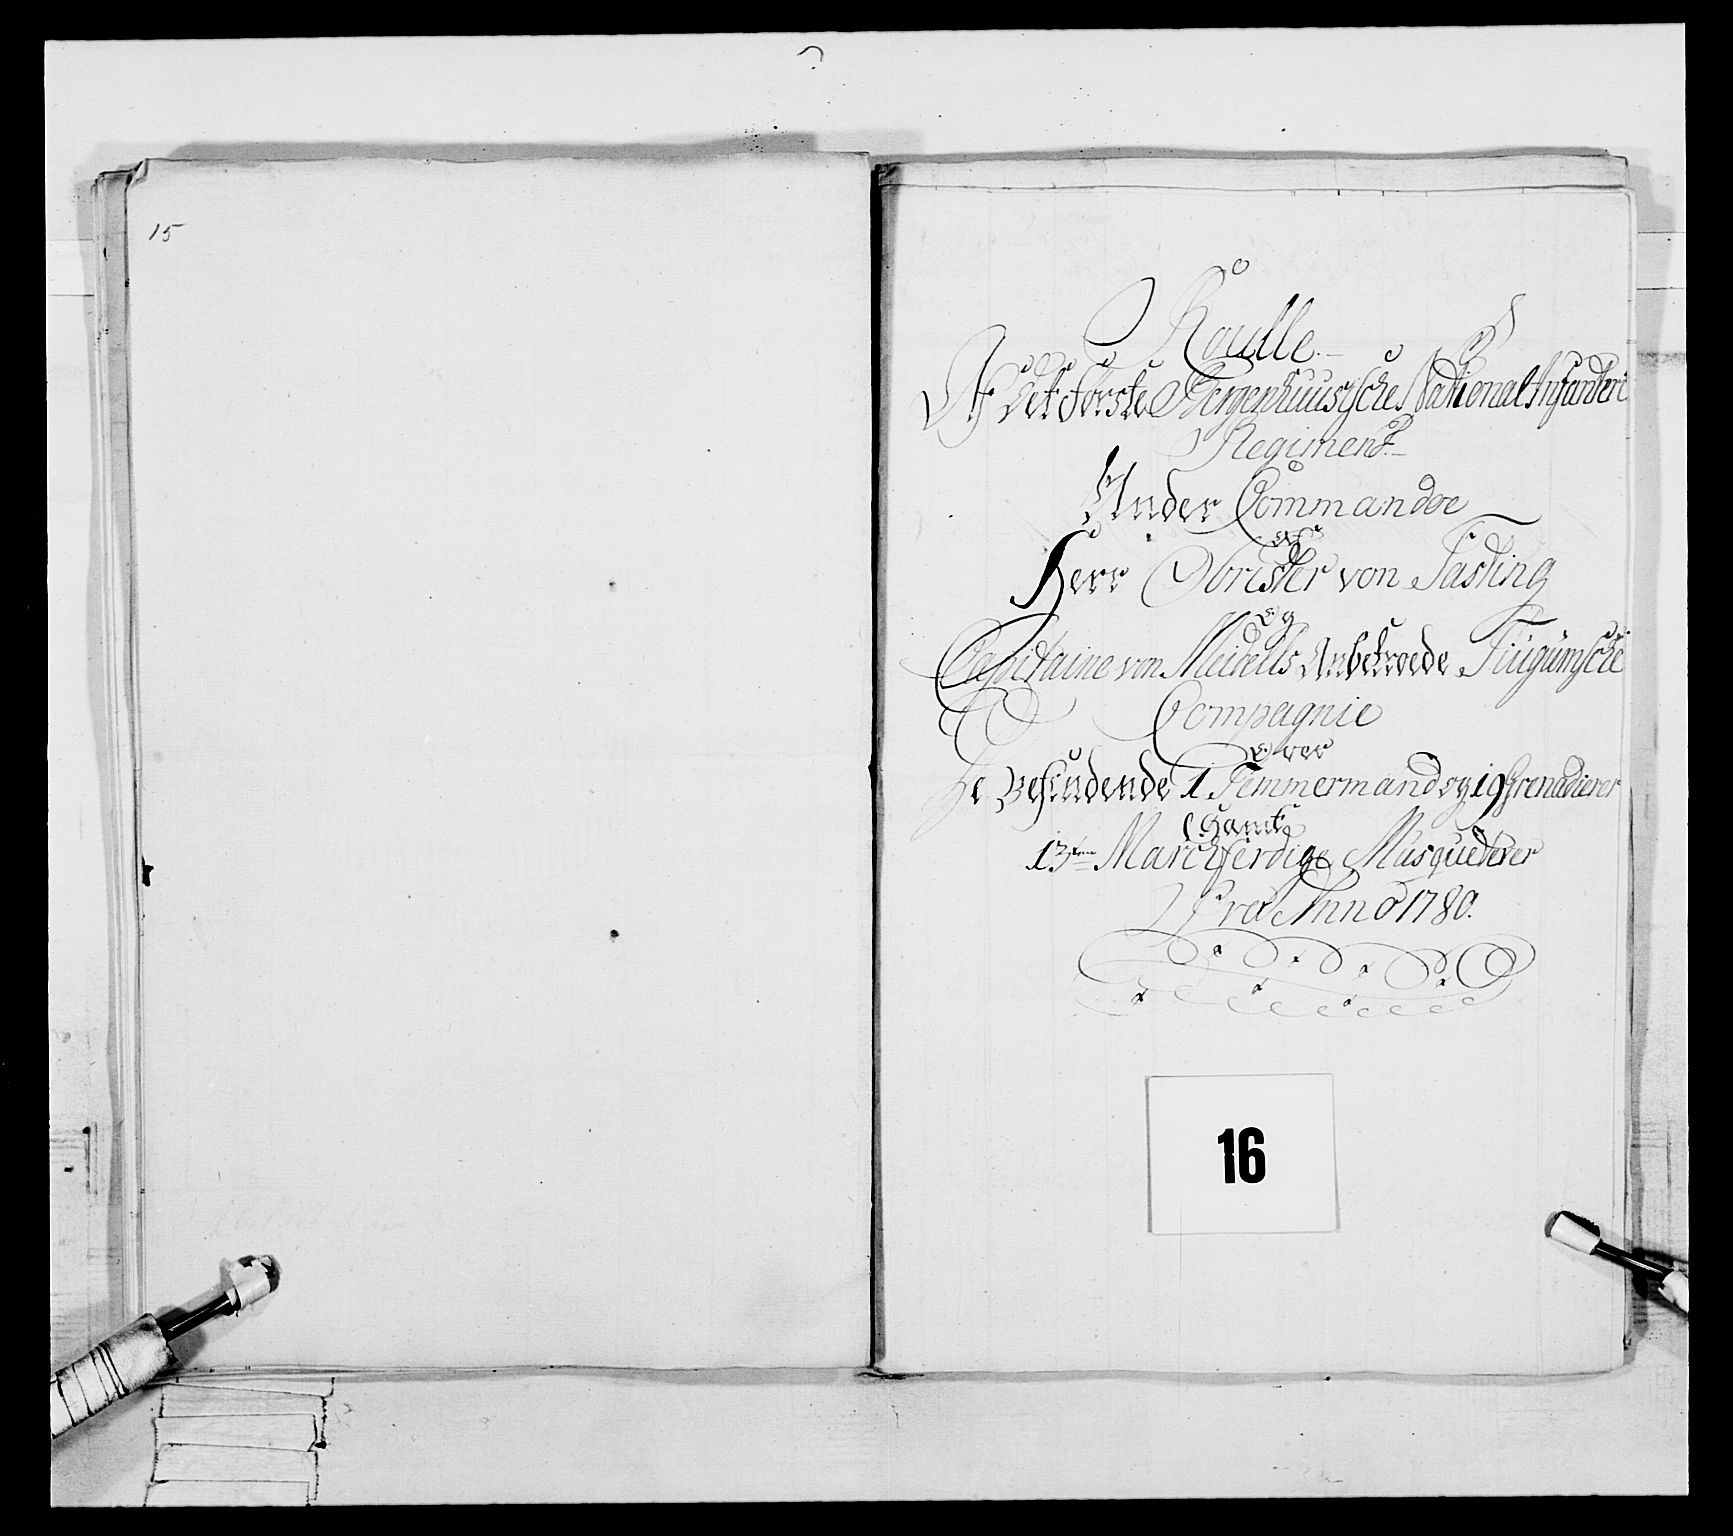 15
Roulle.
Af Det Første Bergenhuusische National Infanteri
Regiment.
Under Commandoe
af
Herr Obrister von Fasting
og
Capitaine von Meidells Anbetroede
Compagnie
over
De Befindende 1 Temmermand og 19 Grenadierer
Samt
Marchferdige Musqueterer
Pro Anno 1780.
16